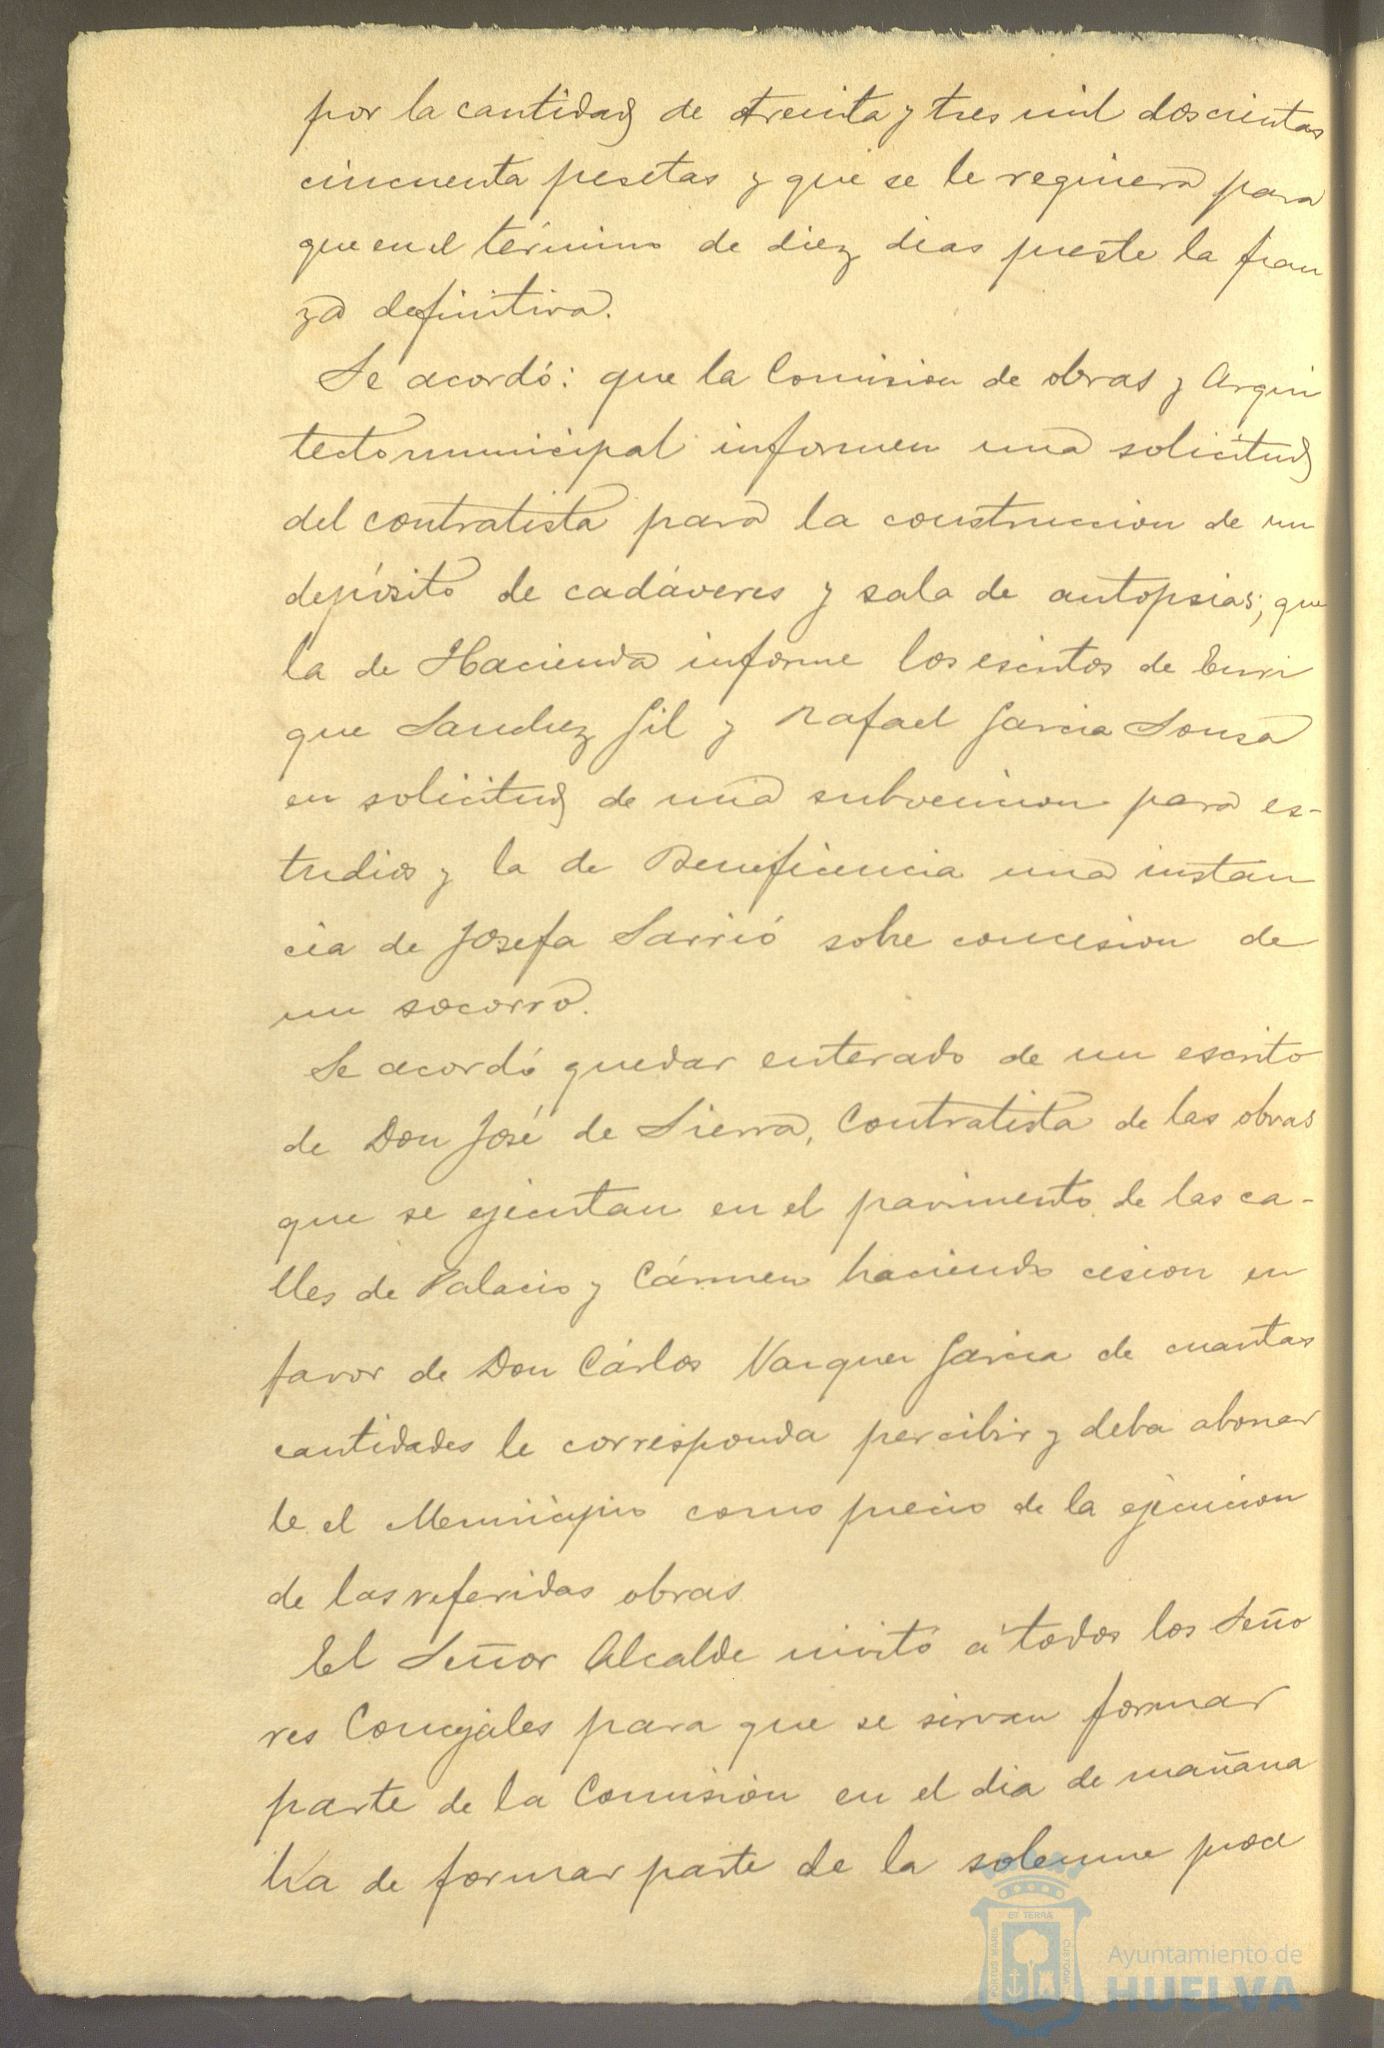 por la cantidad de treinta y tres mil doscientas
cincuenta pesetas y que se le requiera para
que en el término de diez dias preste la fian
za definitiva.
Se acordó: que la Comision de obras y Arqui
tecto municipal informen una solicitud
del contratista para la construccion de un
depósito de cadáveres y sala de autopsias; que
la de Hacienda informe los escritos de Enri
que Sanchez Gil y Rafael Garcia Sousa
en solicitud de una subvencion para es-
tudios y la de Beneficencia una instan
cia de Josefa Sarrió sobre concesion de
un socorro.
Se acordó quedar enterado de un escrito
de Don José de Sierra, Contratista de las obras
que se ejecutan en el pavimento de las ca-
lles de Palacio y Cármen haciendo cesion en
favor de Don Cárlos Vazquez Garcia de cuantas
cantidades le corresponda percibir y deba abonar
le el Municipio como precio de la ejecucion
de las referidas obras.
El Señor Alcalde invitó á todos los Seño
res Concejales para que se sirvan formar
parte de la Comisión en el dia de mañana
ha de formar parte de la solemne proce
ET TERRA
PORTUS MARIS
CUSTODIA
Ayuntamiento de
HUELVA